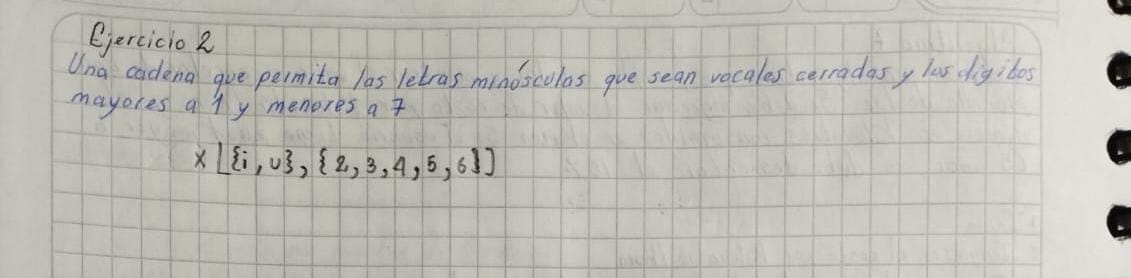 Ejercicio 2
Una cadena que permita las letras minúsculas que sean vocales cerradas y los digitos
mayores a 1 y menores a 7
x [{i, u}, {2, 3, 4, 5, 6}]